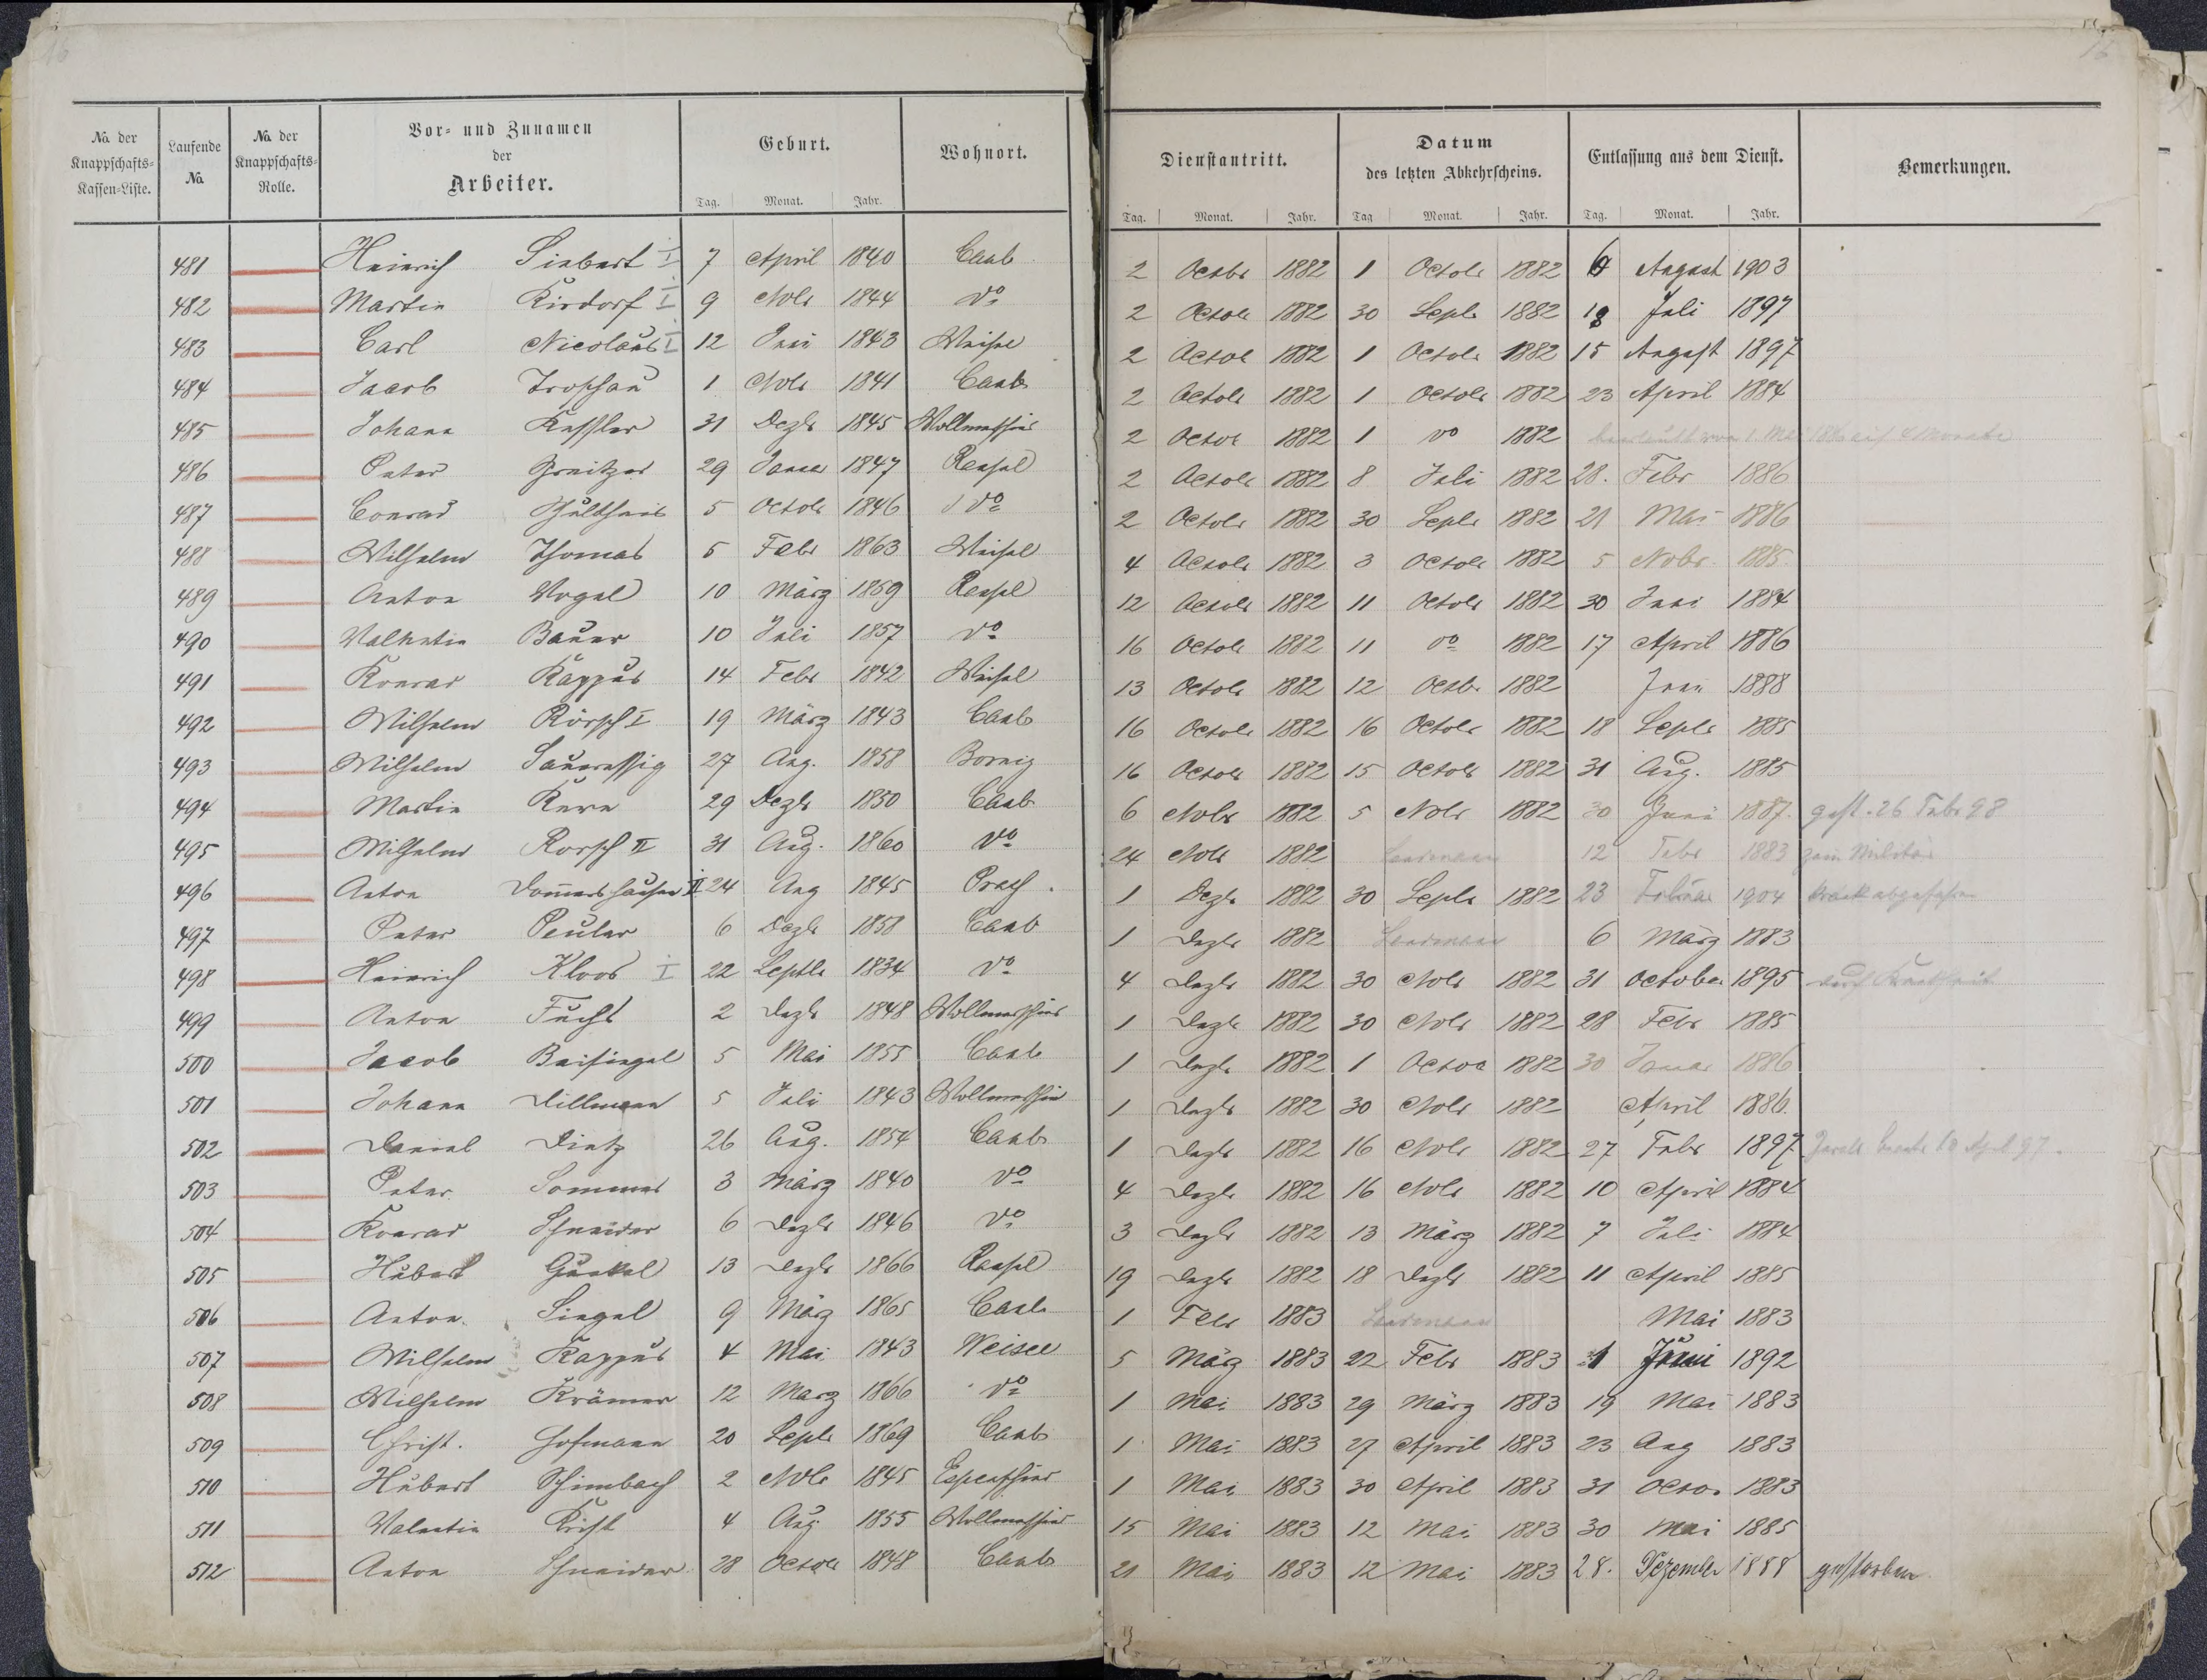 16
15
No. der Knappschafts-Kassen-Liste.
Laufende No.
No. der Knappschafts-Rolle.
Vor- und Zunamen der Arbeiter.
Geburt.
Wohnort.
Dienstantritt.
Datum des letzten Abkehrscheins.
Entlassung aus dem Dienst.
Bemerkungen.
Tag. Monat. Jahr.
Tag. Monat. Jahr. Tag Monat. Jahr. Tag. Monat. Jahr.
481 Heinrich Siebert I 7 April 1840 Caub 2 Octbr 1882 1 Octobr 1882 6 August 1903
482 Martin Kirdorf I 9 Nobr 1844 do 2 Octobr 1882 30 Septbr 1882 18 Juli 1897
483 Carl Nicolaus I 12 Juni 1843 Weisel 2 Octobr 1882 1 Octobr 1882 15 August 1897
484 Jacob 1 Nobr 1841 Caub 2 Octobr 1882 1 Octobr 1882 23 April 1884
485 Johann Kessler 31 Dezbr 1845 Wollmerschied 2 Octobr 1882 1 do 1882
486 Peter 29 Januar 1847 Ransel 2 Octobr 1882 8 Juli 1882 28. Febr 1886
487 Conrad 5 Octobr 1846 do 2 Octobr 1882 30 Septbr 1882 21 Mai 1886
488 Wilhelm Thomas 5 Febr 1863 Weisel 4 Octobr 1882 3 Octobr 1882 5 Nobr. 1885.
489 Anton Vogel 10 März 1859 Ransel 12 Octobr 1882 11 Octobr 1882 30 Juni 1884
490 Valentin Bauer 10 Juli 1857 do 16 Octobr 1882 11 do 1882 17 April 1886
491 Konrad Kappus 14 Febr 1842 Weisel 13 Octobr 1882 12 Octbr 1882 Juni 1888
492 Wilhelm Rörsch I 19 März 1843 Caub 16 Octobr 1882 16 Octobr 1882 18 Septbr 1885
493 Wilhelm Saueressig 27 Aug. 1858 Bornig 16 Octobr 1882 15 Octobr 1882 31 Aug. 1885
494 Martin Kern 29 Dezbr 1850 Caub 6 Nobr 1882 5 Nobr 1882 30 Juni 1887. gest. 26 Febr 98
495 Wilhelm Rorsch II 31 Aug. 1860 do 24 Nobr 1882 12 Febr 1883 zum Militär
496 Anton Dommershausen II 24 Aug 1845 1 Dezbr 1882 30 Septbr 1882 23 Februar 1904 krank
497 Peter Peuler 6 Dezbr 1858 Caub 1 Dezbr 1882 6 März 1883
498 Heinrich Kloos I 22 Septbr 1834 do 4 Dezbr 1882 30 Nobr 1882 31 October 1895 durch Krankheit
499 Anton Fuchs 2 Dezbr 1848 Wollmerschied 1 Dezbr 1882 30 Nobr 1882 28 Febr 1885
500 Jacob Beisiegel 5 Mai 1855 Caub 1 Dezbr 1882 1 Octobr 1882 30 Januar 1886
501 Johann Dillmann 5 Juli 1843 Wollmerschied 1 Dezbr 1882 30 Nobr 1882 April 1886.
502 Daniel Dietz 26 Aug. 1854 Caub 1 Dezbr 1882 16 Nobr 1882 27 Febr 1897
503 Peter Sommer 3 März 1840 do 4 Dezbr 1882 16 Nobr 1882 10 April 1884
504 Konrad Schneider 6 Dezbr 1846 do 3 Dezbr 1882 13 März 1882 7 Juli 1884
505 Hubert Gunkel 13 Dezbr 1866 Ransel 19 Dezbr 1882 18 Dezbr 1882 11 April 1885
506 Anton Siegel 9 März 1865 Caub 1 Febr 1883 Mai 1883
507 Wilhelm Kappus 4 Mai 1843 Weisel 5 März 1883 22 Febr 1883 1 Juni 1892
508 Wilhelm Krämer 12 März 1866 do 1 Mai 1883 29 März 1883 19 Mai 1883
509 Christ. Hofmann 20 Septbr 1869 Caub 1 Mai 1883 27 April 1883 23 Aug 1883
510 Hubert Schimbach 2 Nobr 1845 Espenschied 1 Mai 1883 30 April 1883 31 Octobr 1883
511 Valentin Krist 4 Aug 1855 Wollmerschied 15 Mai 1883 12 Mai 1883 30 Mai 1885
512 Anton Schneider 28 Octobr 1848 Caub 21 Mai 1883 12 Mai 1883 28. Dezember 1888 gestorben